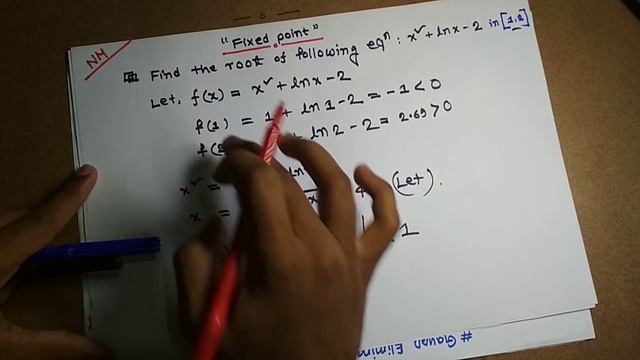 NM
"Fixed point"
Find the root of following eqⁿ: x² + ln x - 2 in [1,2]
Let, f(x) = x² + ln x - 2
f(1) = 1 + ln 1 - 2 = -1 < 0
f(2 + ln 2 - 2 = 2.69 > 0
x² = ln
x = (Let).
1
# Gauss Elimin